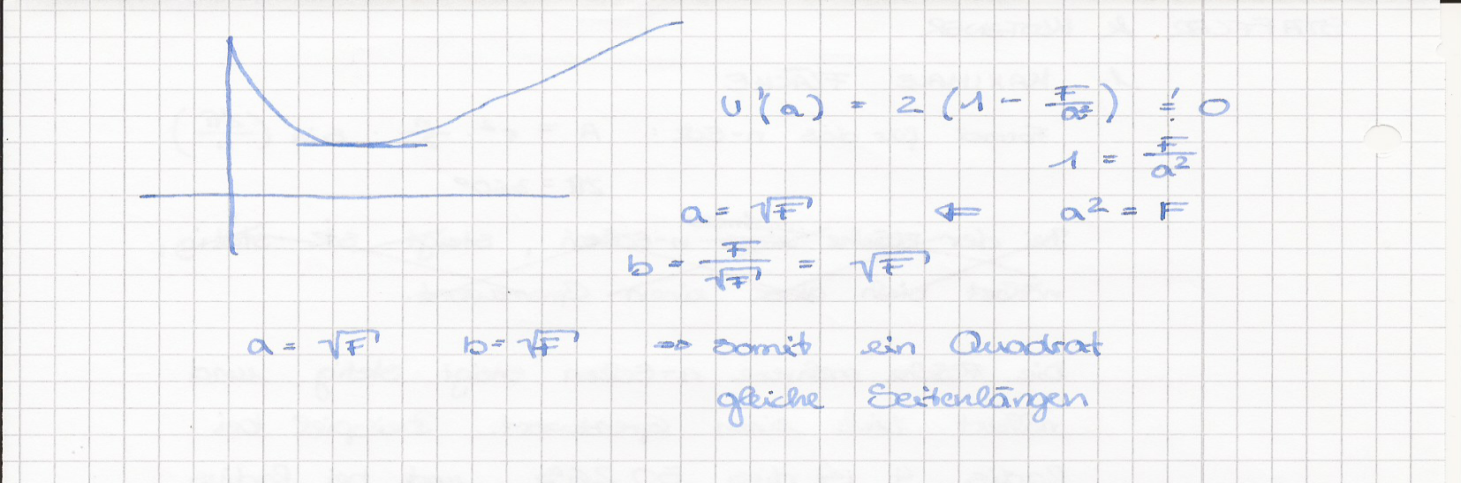 U'(a) = 2 (1 - F/a²) != 0
1 = F/a²
a = √F ⇐ a² = F
b = F/√F = √F
a = √F b = √F ⇒ somit ein Quadrat
gleiche Seitenlängen